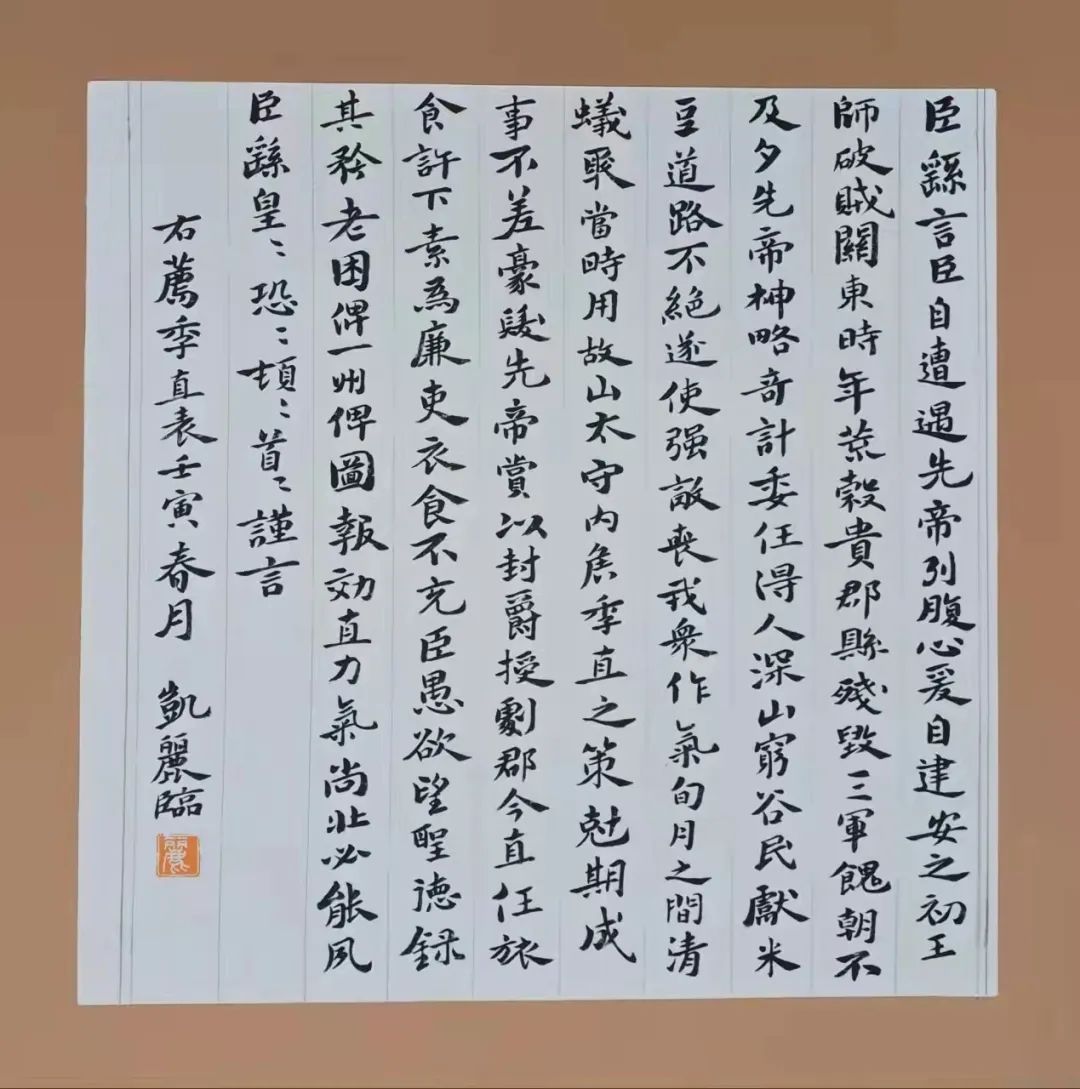 臣繇言臣自遭遇先帝列腹心爰自建安之初王
師破賊關東時年荒穀貴郡縣殘毀三軍餽朝不
及夕先帝神略奇計委任得人深山窮谷民獻米
豆道路不絕遂使强敵喪我衆作氣旬月之間清
蟻聚當時用故山太守內侯季直之策尅期成
事不差豪髮先帝賞以封爵授劇郡今直任旅
食許下素爲廉吏衣食不充臣愚欲望聖德録
其矜老困俾一州俾圖報効直力氣尚壯必能夙
臣繇皇〻恐〻頓〻首〻謹言
右薦季直表壬寅春月 凱麗臨
麗